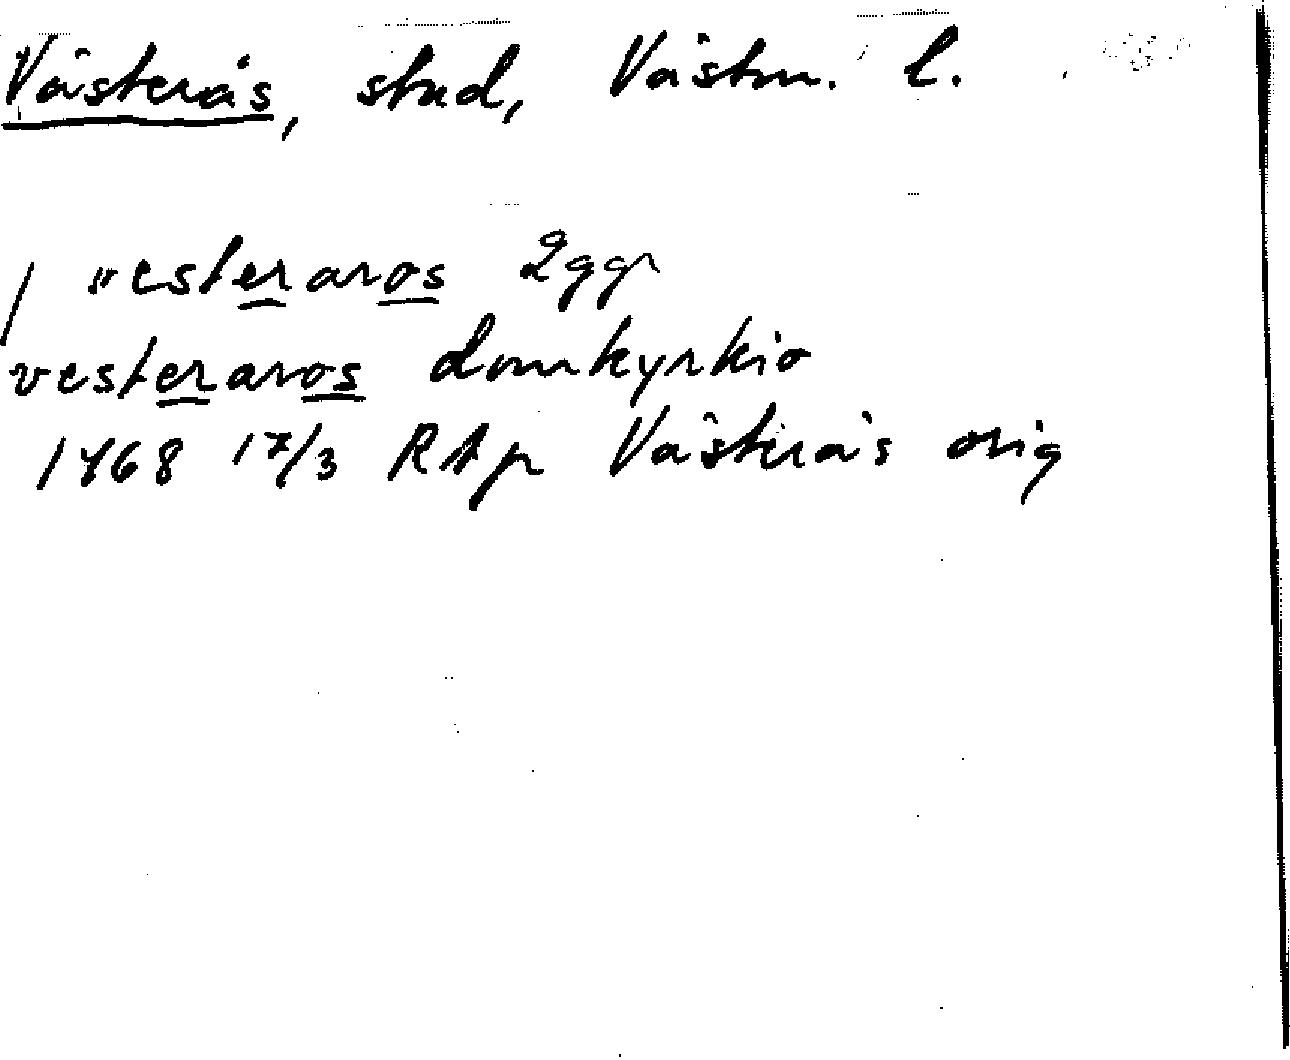 Västerås, stad, Västm. l.
/ vesteraros 2 ggr
vesteraros domkyrkio
1468 17/3 RAp Västerås orig